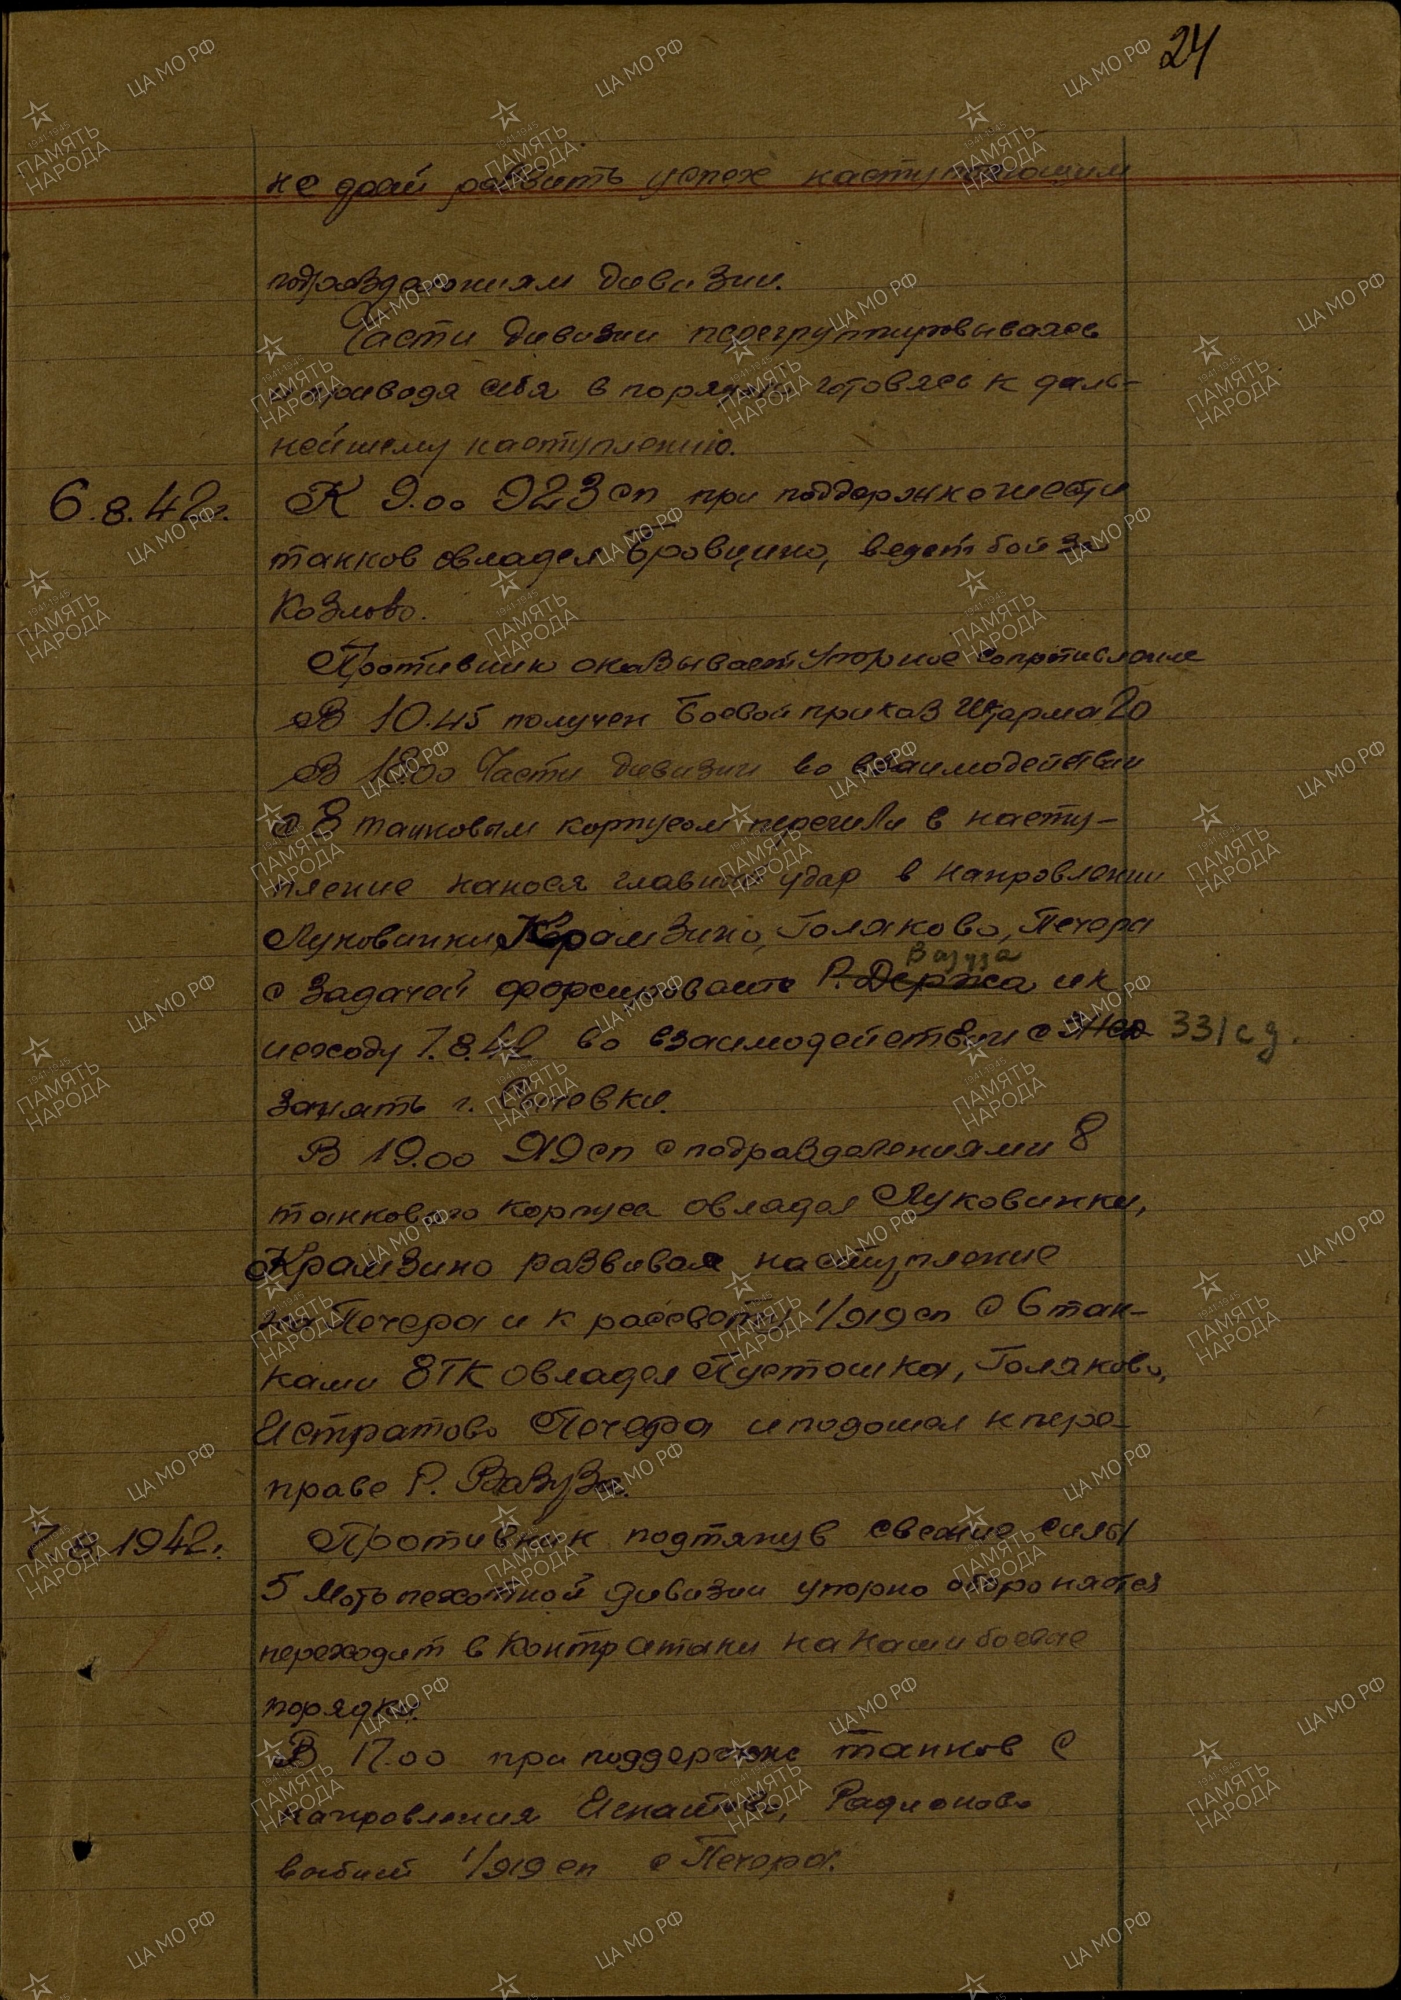 24
не дай развить успех наступающим
подразделениям дивизии.
Части дивизии перегруппировываясь
и приводя себя в порядок готовясь к даль-
нейшему наступлению.
6.8.42г. К 9.00 923 сп при поддержке шести
танков овладел Бровцино, ведет бой за
Козлово.
Противник оказывает упорное сопротивление
В 10.45 получен боевой приказ Штарма 20
В 18.00 Части дивизии во взаимодействии
с 8 танковым корпусом перешли в насту-
пление нанося главный удар в направлении
Луковинки, Крамзино, Голяково, Печера
Вазуза
с задачей форсировать Р. Держа и к
исходу 7.8.42 во взаимодействии с 331 сд.
занять г. Сычевки.
В 19.00 919 сп с подразделениями 8
танкового корпуса овладел Луковинки,
Крамзино развивая наступление
на Печера и к рассвету 1/919 сп с 6 тан-
ками 8ТК овладел Пустошка, Голяково,
Истратово Печера и подошел к пере-
праве Р. Вазуза.
7.8.1942г. Противник подтянув свежие силы
5 мото пехотной дивизии упорно обороняется
переходит в контратаки на наши боевые
порядки.
В 17.00 при поддержке танков с
направления Игнатово, Радионово
выбил 1/919 сп с Печера.
ЦА МО РФ
1941-1945
ПАМЯТЬ
НАРОДА